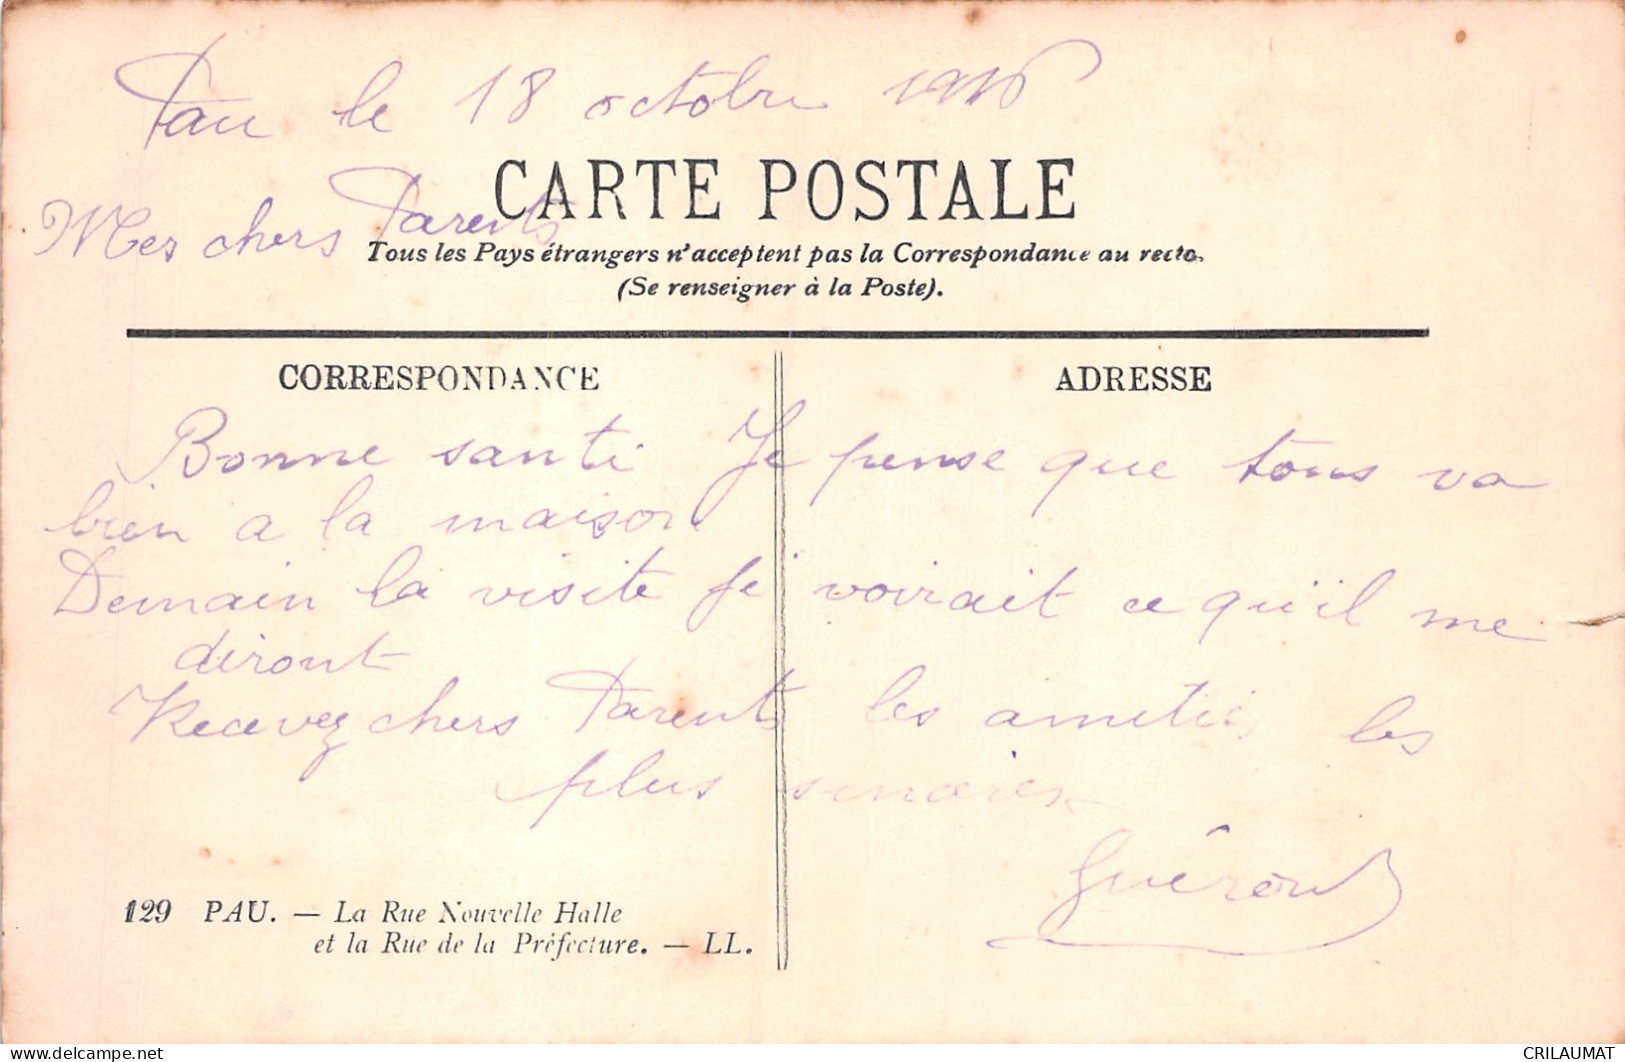 Pau le 18 octobre 1916
CARTE POSTALE
Mes chers Parents
Tous les Pays étrangers n'acceptent pas la Correspondance au recto.
(Se renseigner à la Poste).
CORRESPONDANCE
ADRESSE
Bonne santé Je pense que tous va
bien a la maison
Demain la visite je voirait ce qu'il me
diront
Recevez chers Parents les amitiés les
plus sincères
129 PAU. — La Rue Nouvelle Halle
et la Rue de la Préfecture. — LL.
delcampe.net
CRILAUMAT